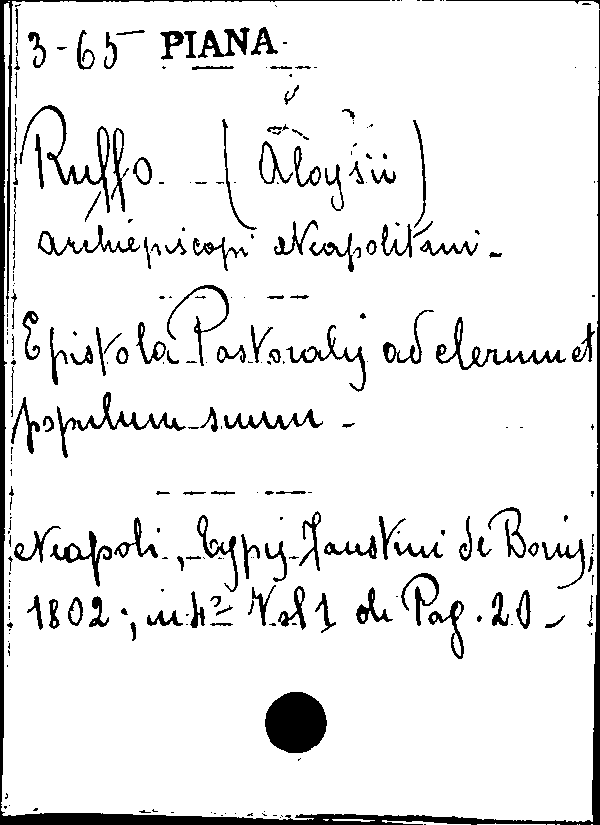 3-65 PIANA
Ruffo (Aloysii)
Archiepiscopi Neapolitani -
Epistola Pastoralis ad clerum et
populum suum -
Neapoli, Typis Faustini de Bonis,
1802; in 4º Vol 1 di Pag. 20 -